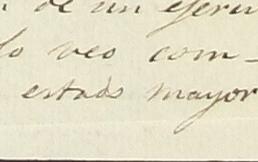 de un ejerci
lo veo com-
estads mayor